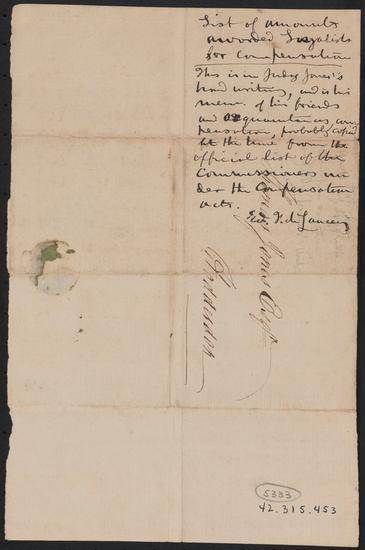 List of amounts
awarded Loyalists
for Compensation
This is in Judge Jones's
hand writing, and is his
mem. of his friends
and acquaintances com
pensation, probably copied
at the time from the
official list of the
Commissioners un
der the Compensation
acts.
Edw. F. de Lancey
Jones Esqr
Hoddesdon
5333
42.315.453